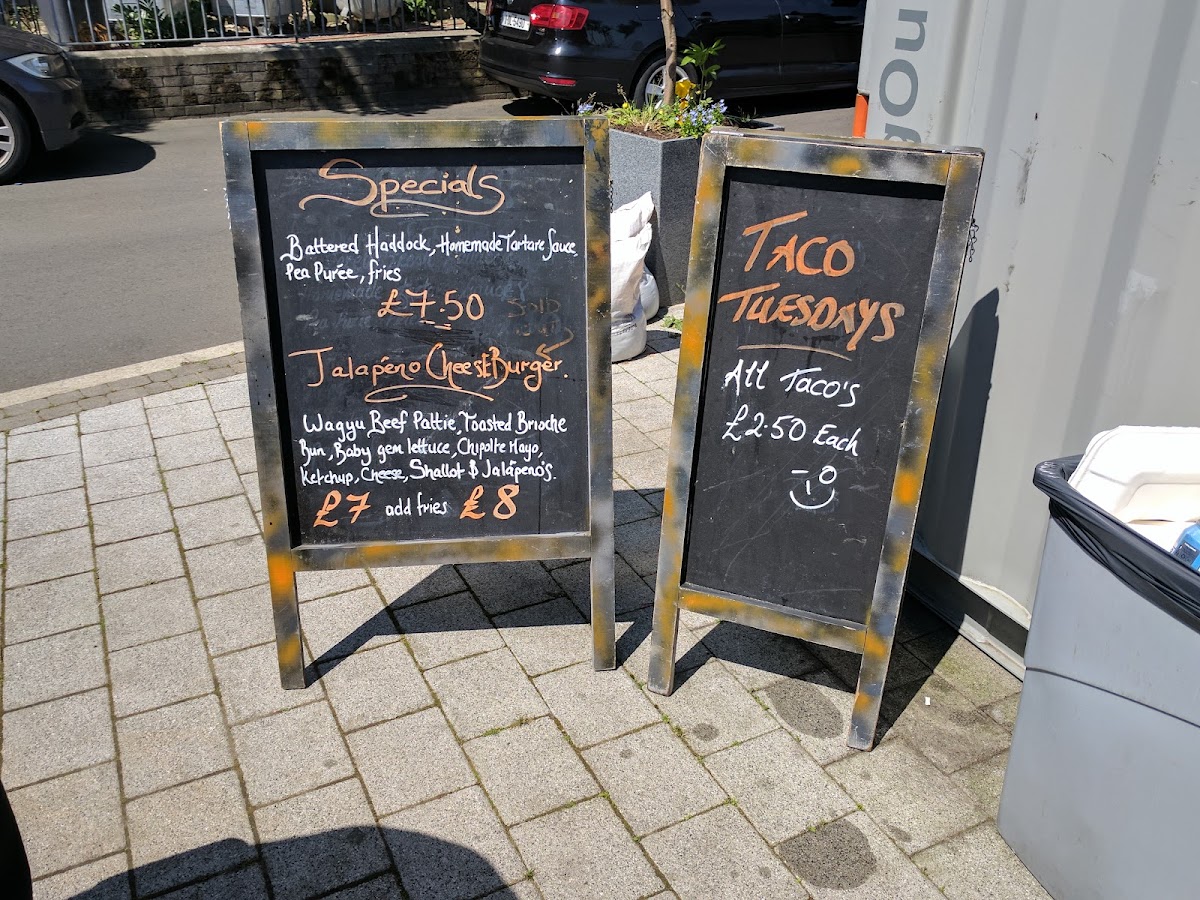 Specials
Battered Haddock, Homemade Tartare Sauce,
Pea Purée, fries
£7.50
SOLD
Jalapéno CheesEBurger.
Wagyu Beef Pattie, Toasted Brioche
Bun, Baby gem lettuce, Chipolte Mayo,
Ketchup, Cheese, Shallot & Jalápeno's.
£7 add fries £8
TACO
TUESDAYS
All Taco's
£2.50 Each